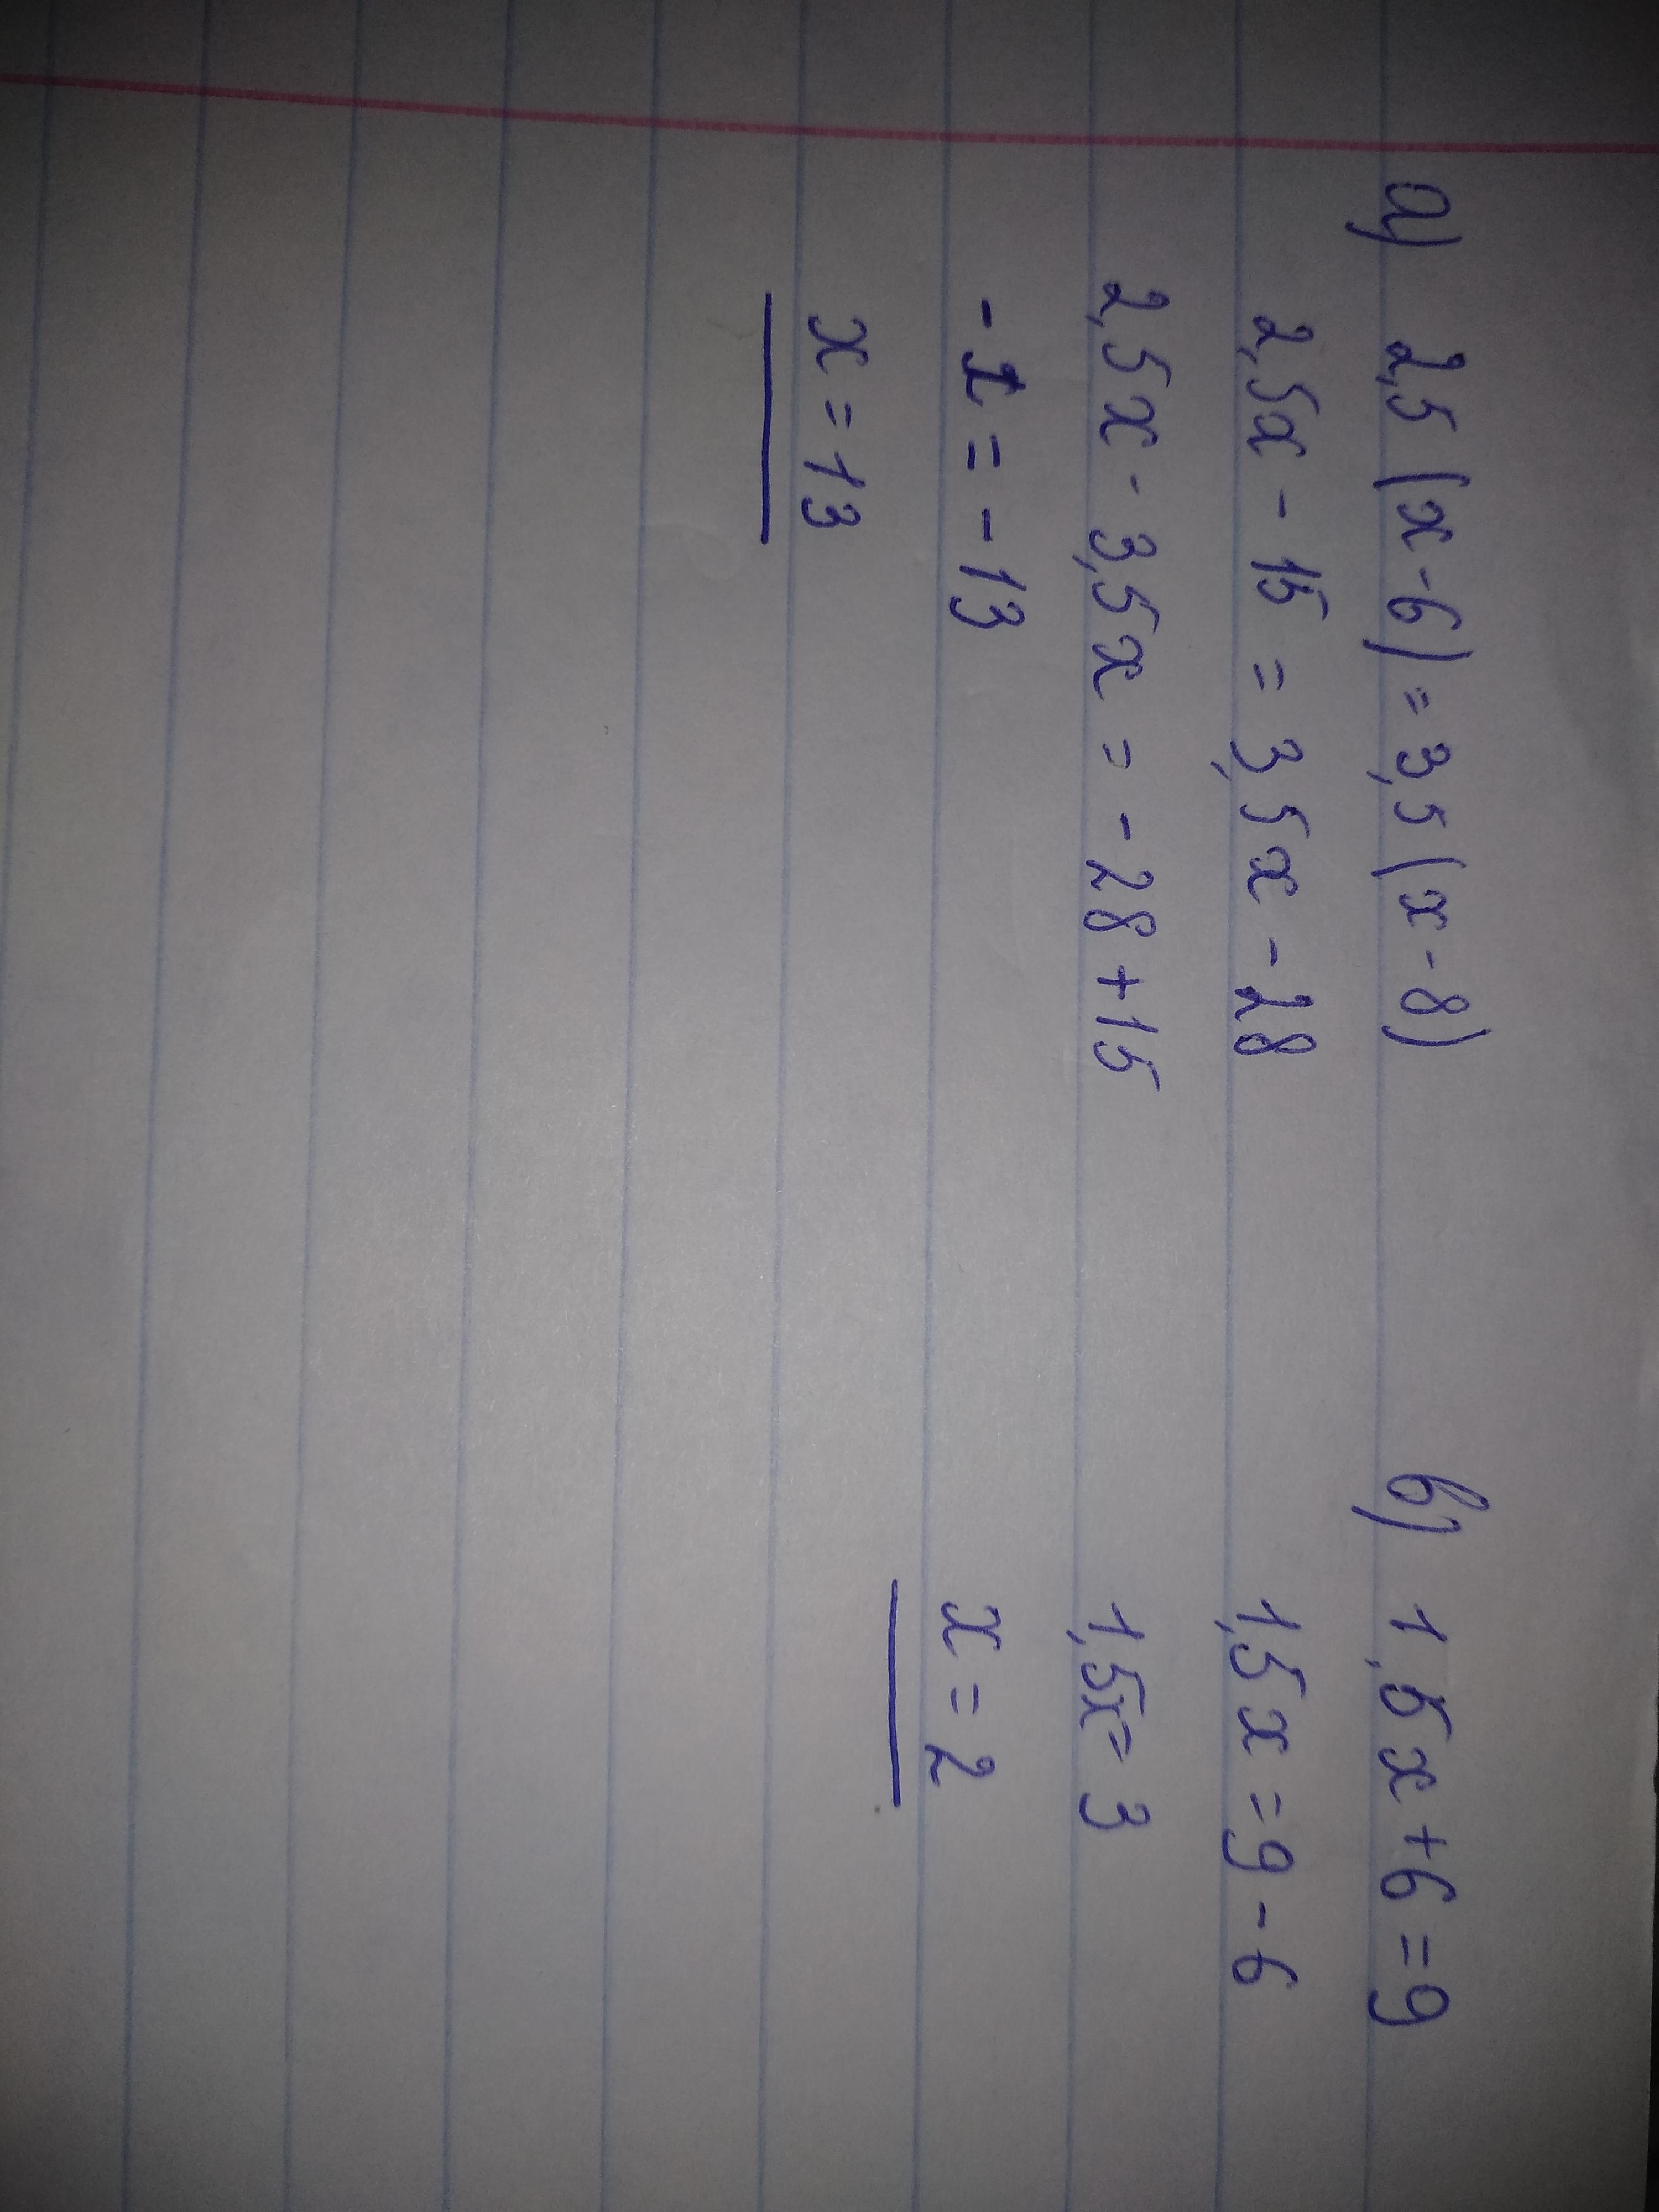 а) 2,5 (x-6) = 3,5 (x-8)
2,5x - 15 = 3,5x - 28
2,5x - 3,5x = -28+15
-1 = -13
x = 13
в) 1,5x+6=9
1,5x = 9-6
1,5x= 3
x = 2